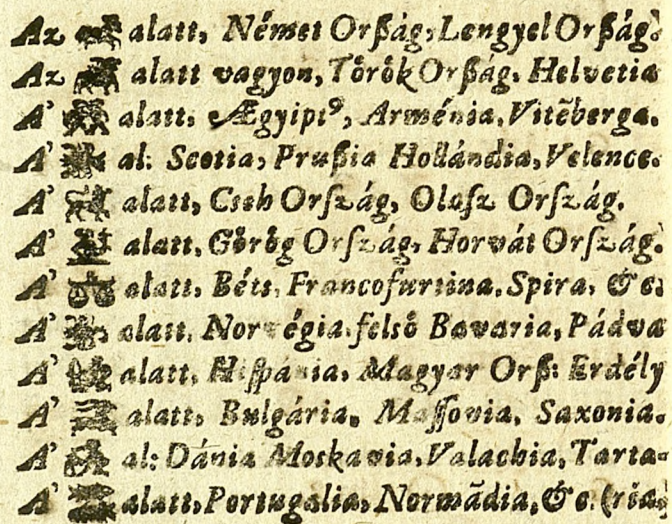 Az alatt, Német Orßág, Lengyel Orßág.
Az alatt vagyon, Tőrők Orßág, Helvetia
A' alatt, Ægyiptꝰ, Arménia, Vitẽberga.
A' al: Scotia, Prußia Hollándia, Velence.
A' alatt, Cseh Orſzág, Olaſz Orſzág.
A' alatt, Gőrőg Orſzág, Horvát Orſzág.
A' alatt, Béts, Francofurtina, Spira, &c.
A' alatt, Norvégia, felső Bavaria, Pádva
A' alatt, Hiſpánia, Magyar Orß: Erdély
A' alatt, Bulgária, Maſſovia, Saxonia.
A' al: Dánia Moskavia, Valachia, Tarta-
A' alatt, Portugalia, Normãdia, &c. (ria,